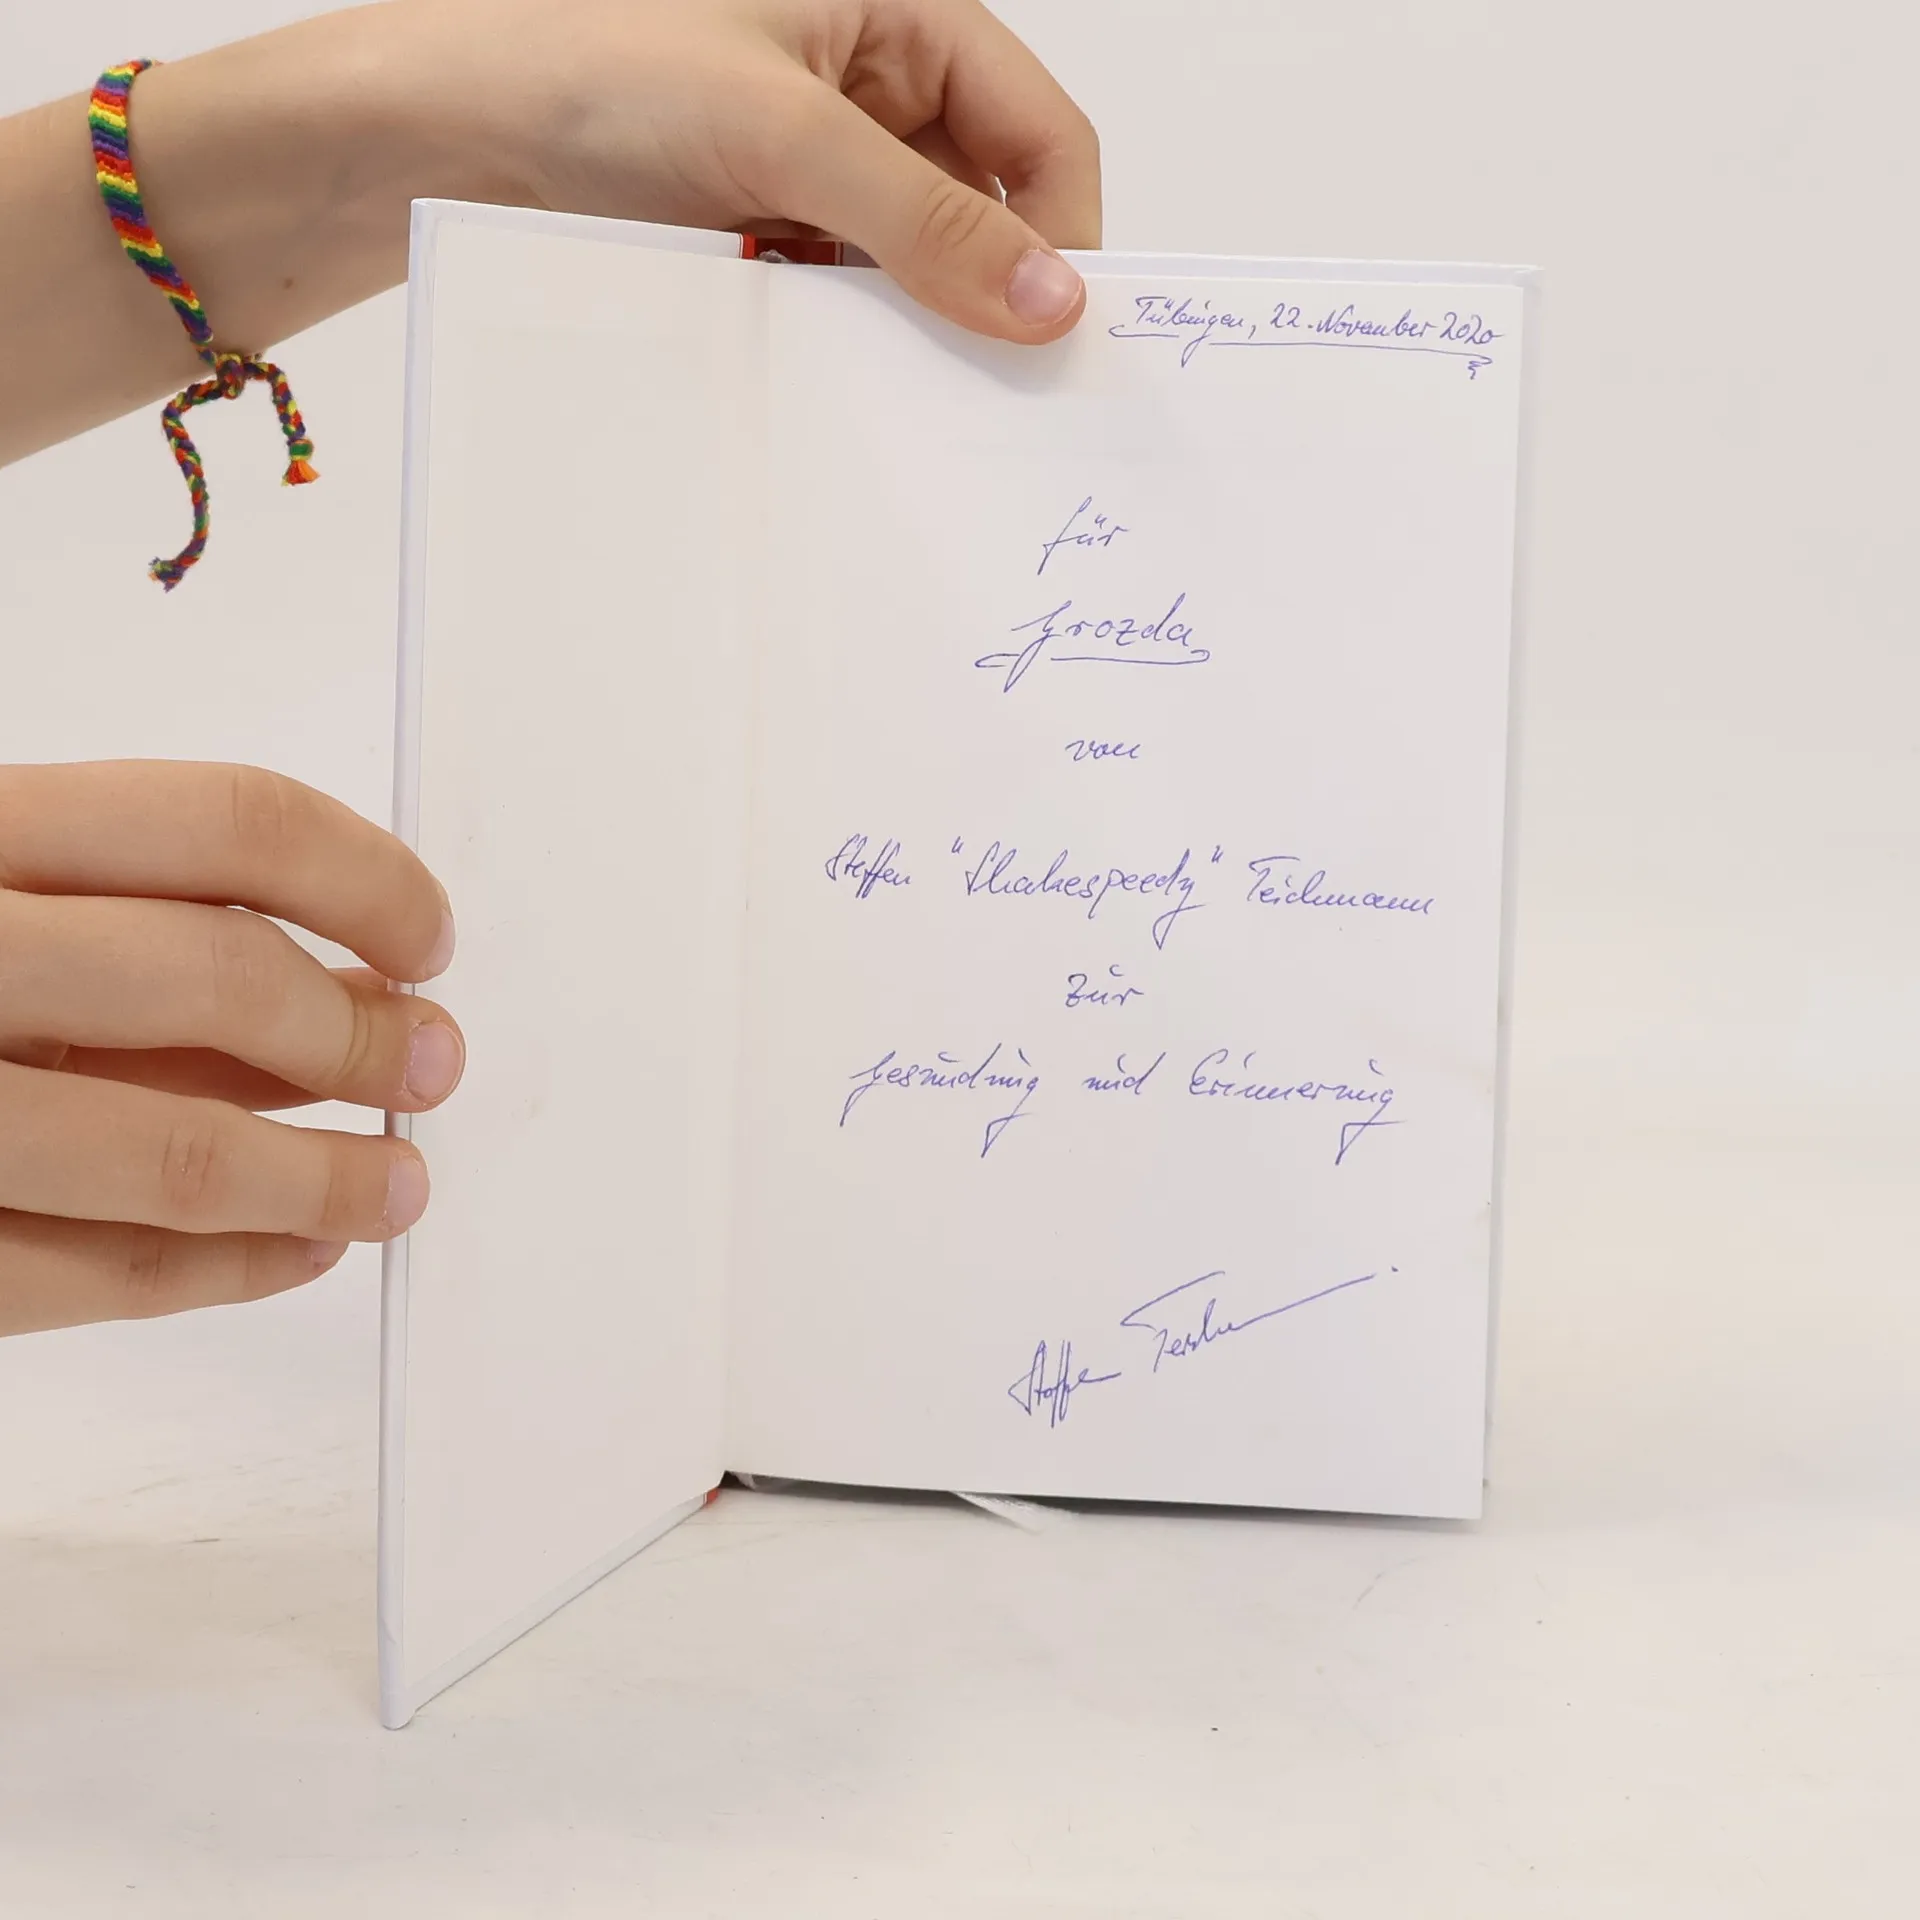 Tübingen, 22. November 2020
für
Grozda
von
Steffen "Shakespeedy" Teichmann
zur
Gesundung und Erinnerung
Steffen